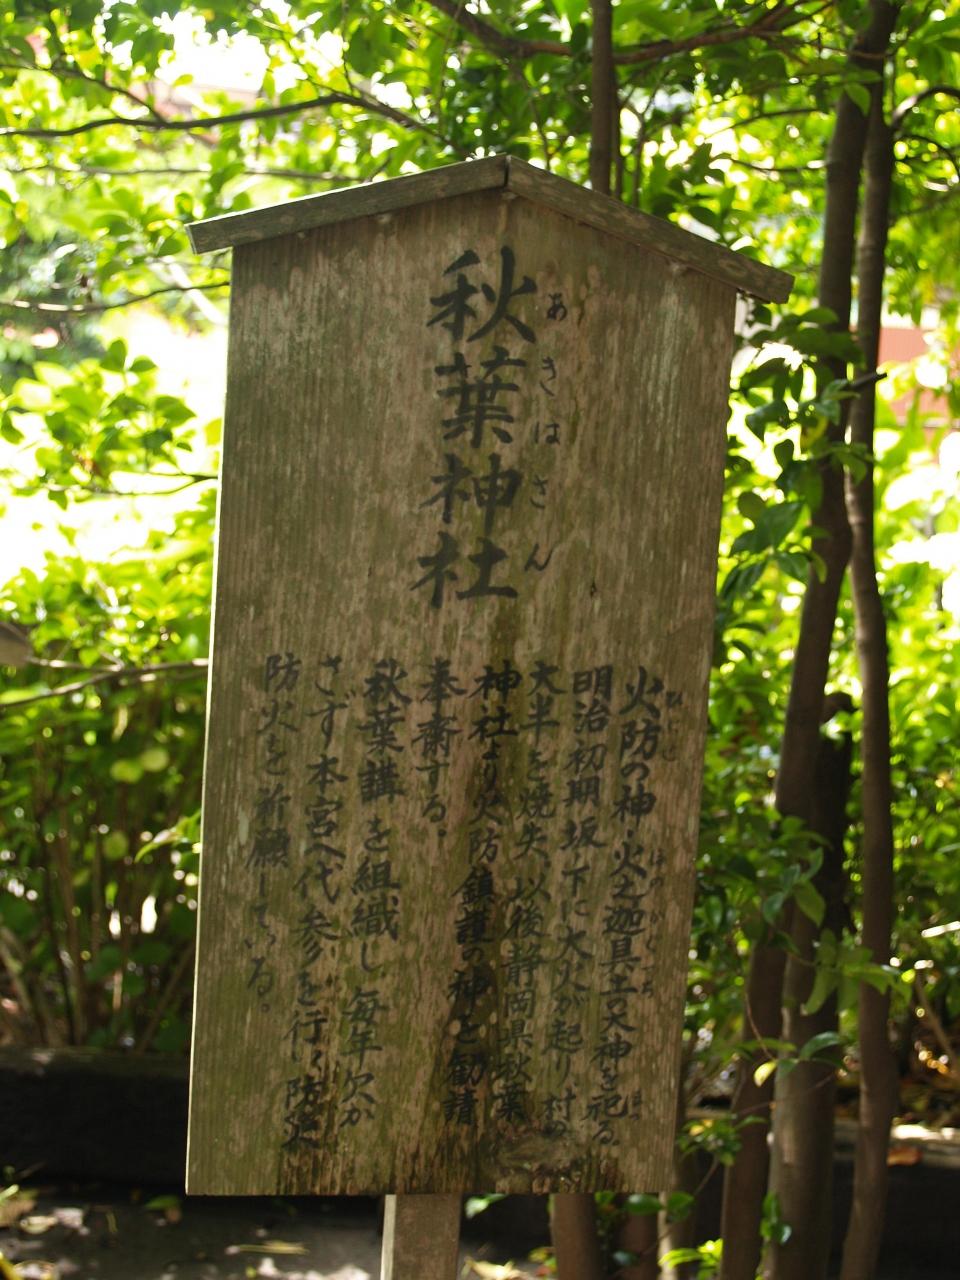 秋葉神社
あきはさん
火防の神・火之迦具土の大神を祀る
ひぶせ
ほのかぐつち
まつ
明治初期坂下に大火が起り村の
大半を焼失、以後静岡県秋葉
神社より火防鎮護の神を勧請
奉齋する。
秋葉講を組織し毎年欠か
さず本宮へ代参を行く防災
防火を祈願している。